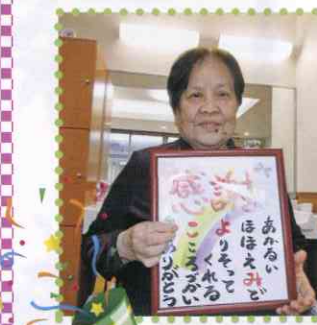 感謝
あかるい
ほほえみで
よりそって
くれる
こころづかい
ありがとう